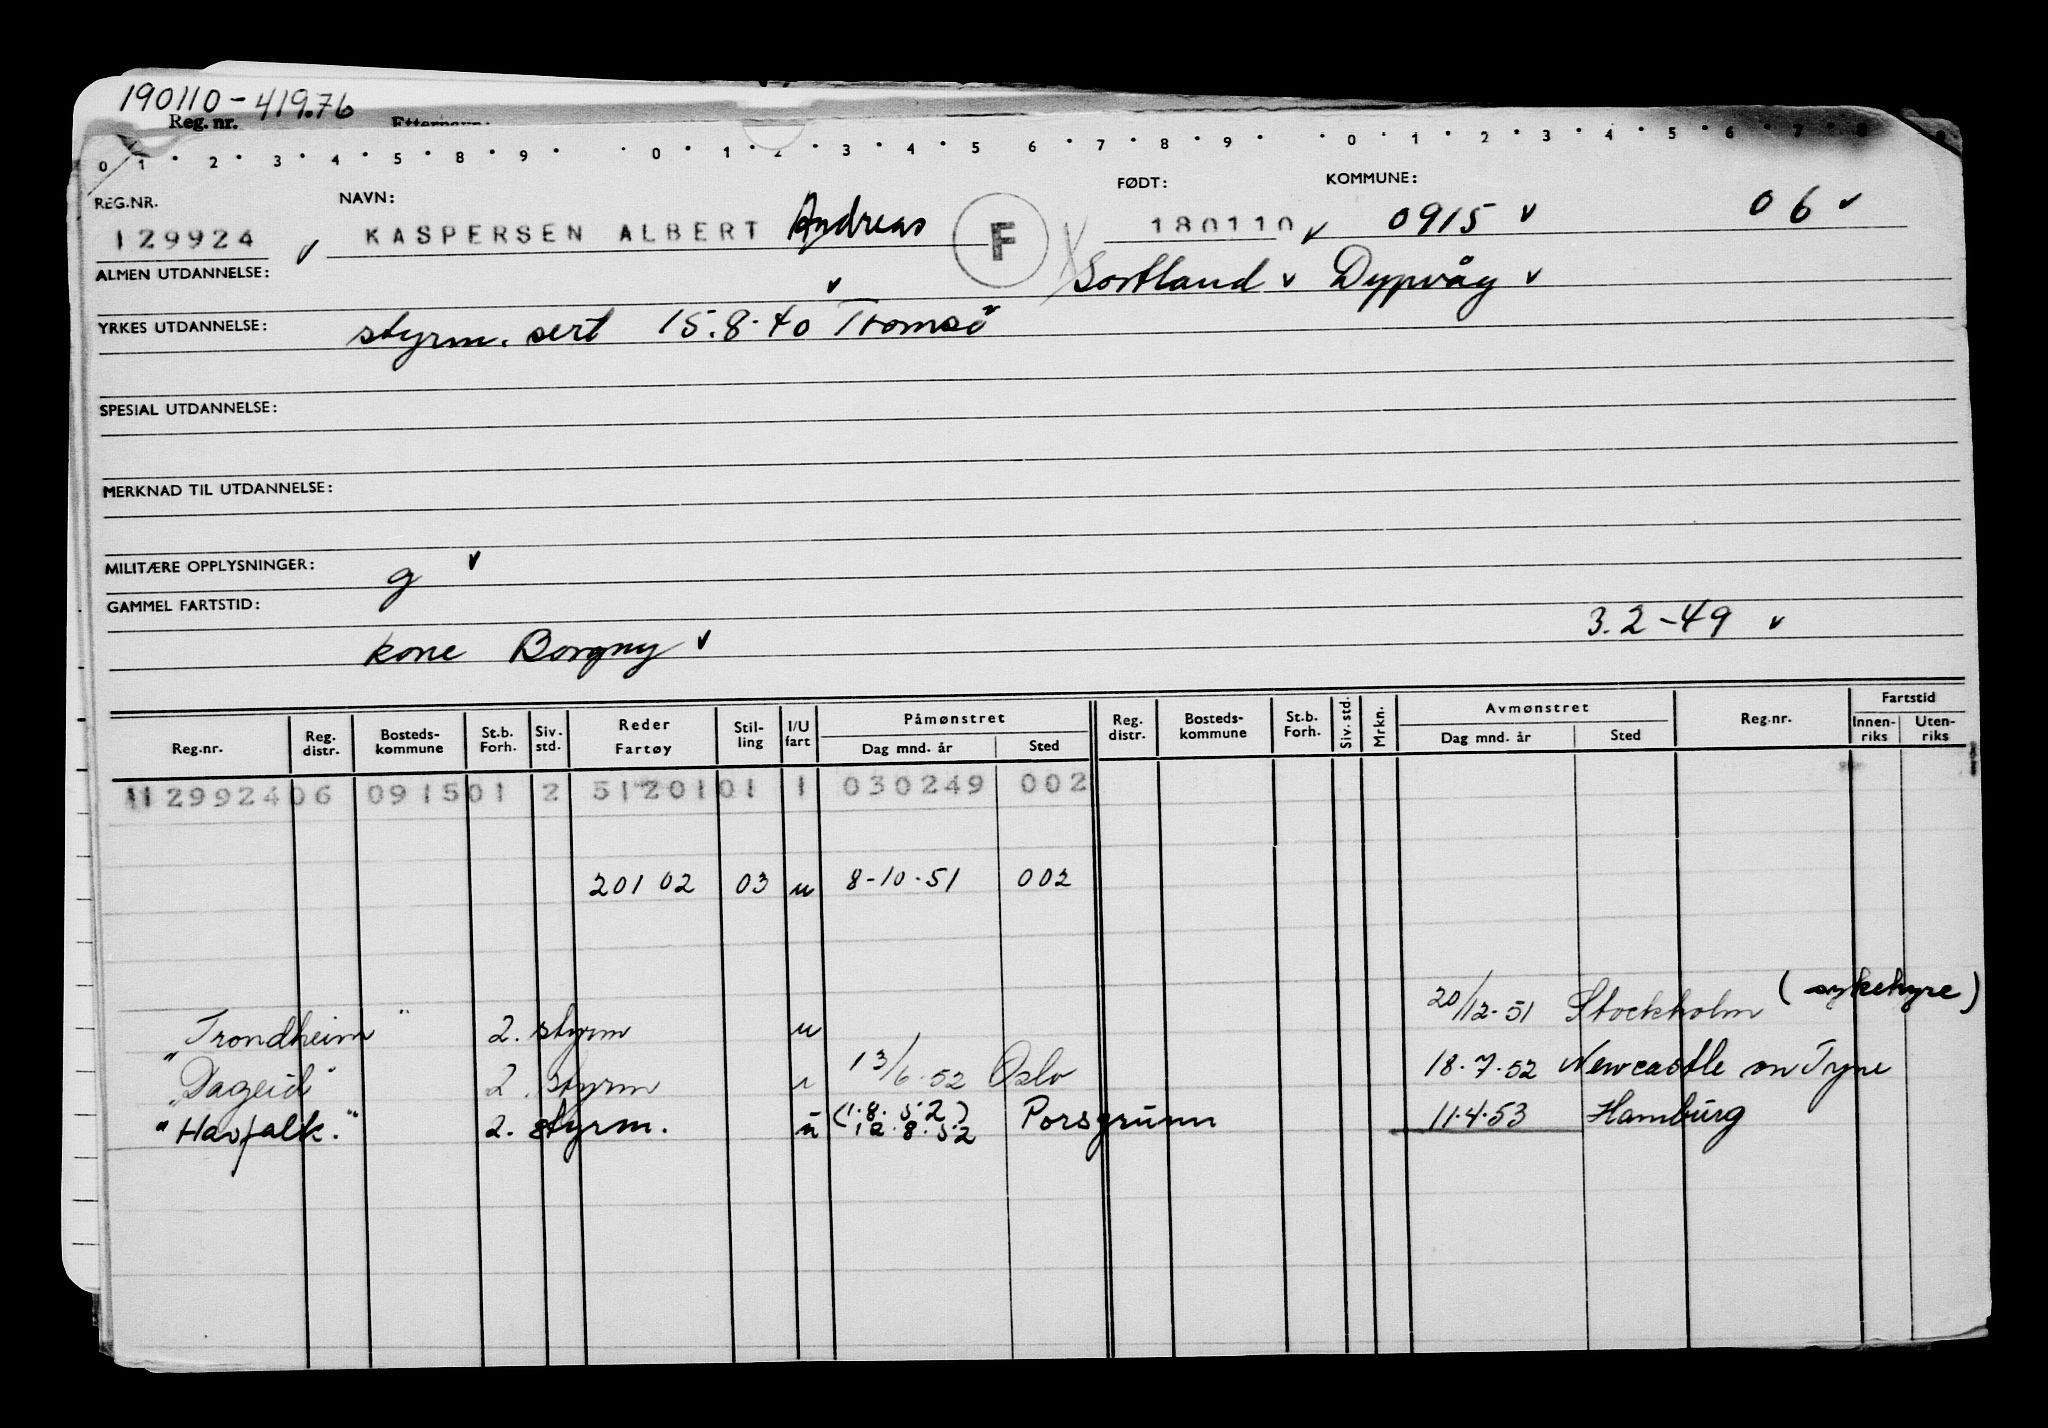 190110-41976
Reg. nr. Etternavn:
0 1 2 3 4 5 8 9 0 1 2 3 4 5 6 7 8 9 0 1 2 3 4 5 6 7 8 9
REG.NR. NAVN: FØDT: KOMMUNE:
129924 v KASPERSEN ALBERT Andreas F 180110 v 0915 v 06 v
ALMEN UTDANNELSE: v Sortland v Dypvåg v
YRKES UTDANNELSE: styrm. sert 15.8.40 Tromsö
SPESIAL UTDANNELSE:
MERKNAD TIL UTDANNELSE:
MILITÆRE OPPLYSNINGER: g v
GAMMEL FARTSTID:
kone Borgny v 3.2-49 v
Reg.nr. Reg. distr. Bosteds-kommune St.b. Forh. Siv. std. Reder Fartøy Stil-ling I/U fart Påmønstret Dag mnd. år Sted Reg. distr. Bosteds-kommune St.b. Forh. Siv. std. Mrkn. Avmønstret Dag mnd. år Sted Reg.nr. Fartstid Innen-riks Uten-riks
129924 06 0915 01 2 51201 01 1 030249 002
201 02 03 u 8-10-51 002
"Trondheim" 2. styrm u 20/12-51 Stockholm (sykehyre)
"Dageid" 2. styrm 13/6.52 Oslo 18.7.52 Newcastle on Tyne
"Havfalk." 2. styrm. u (1.8.52) 12.8.52 Porsgrunn 11.4.53 Hamburg